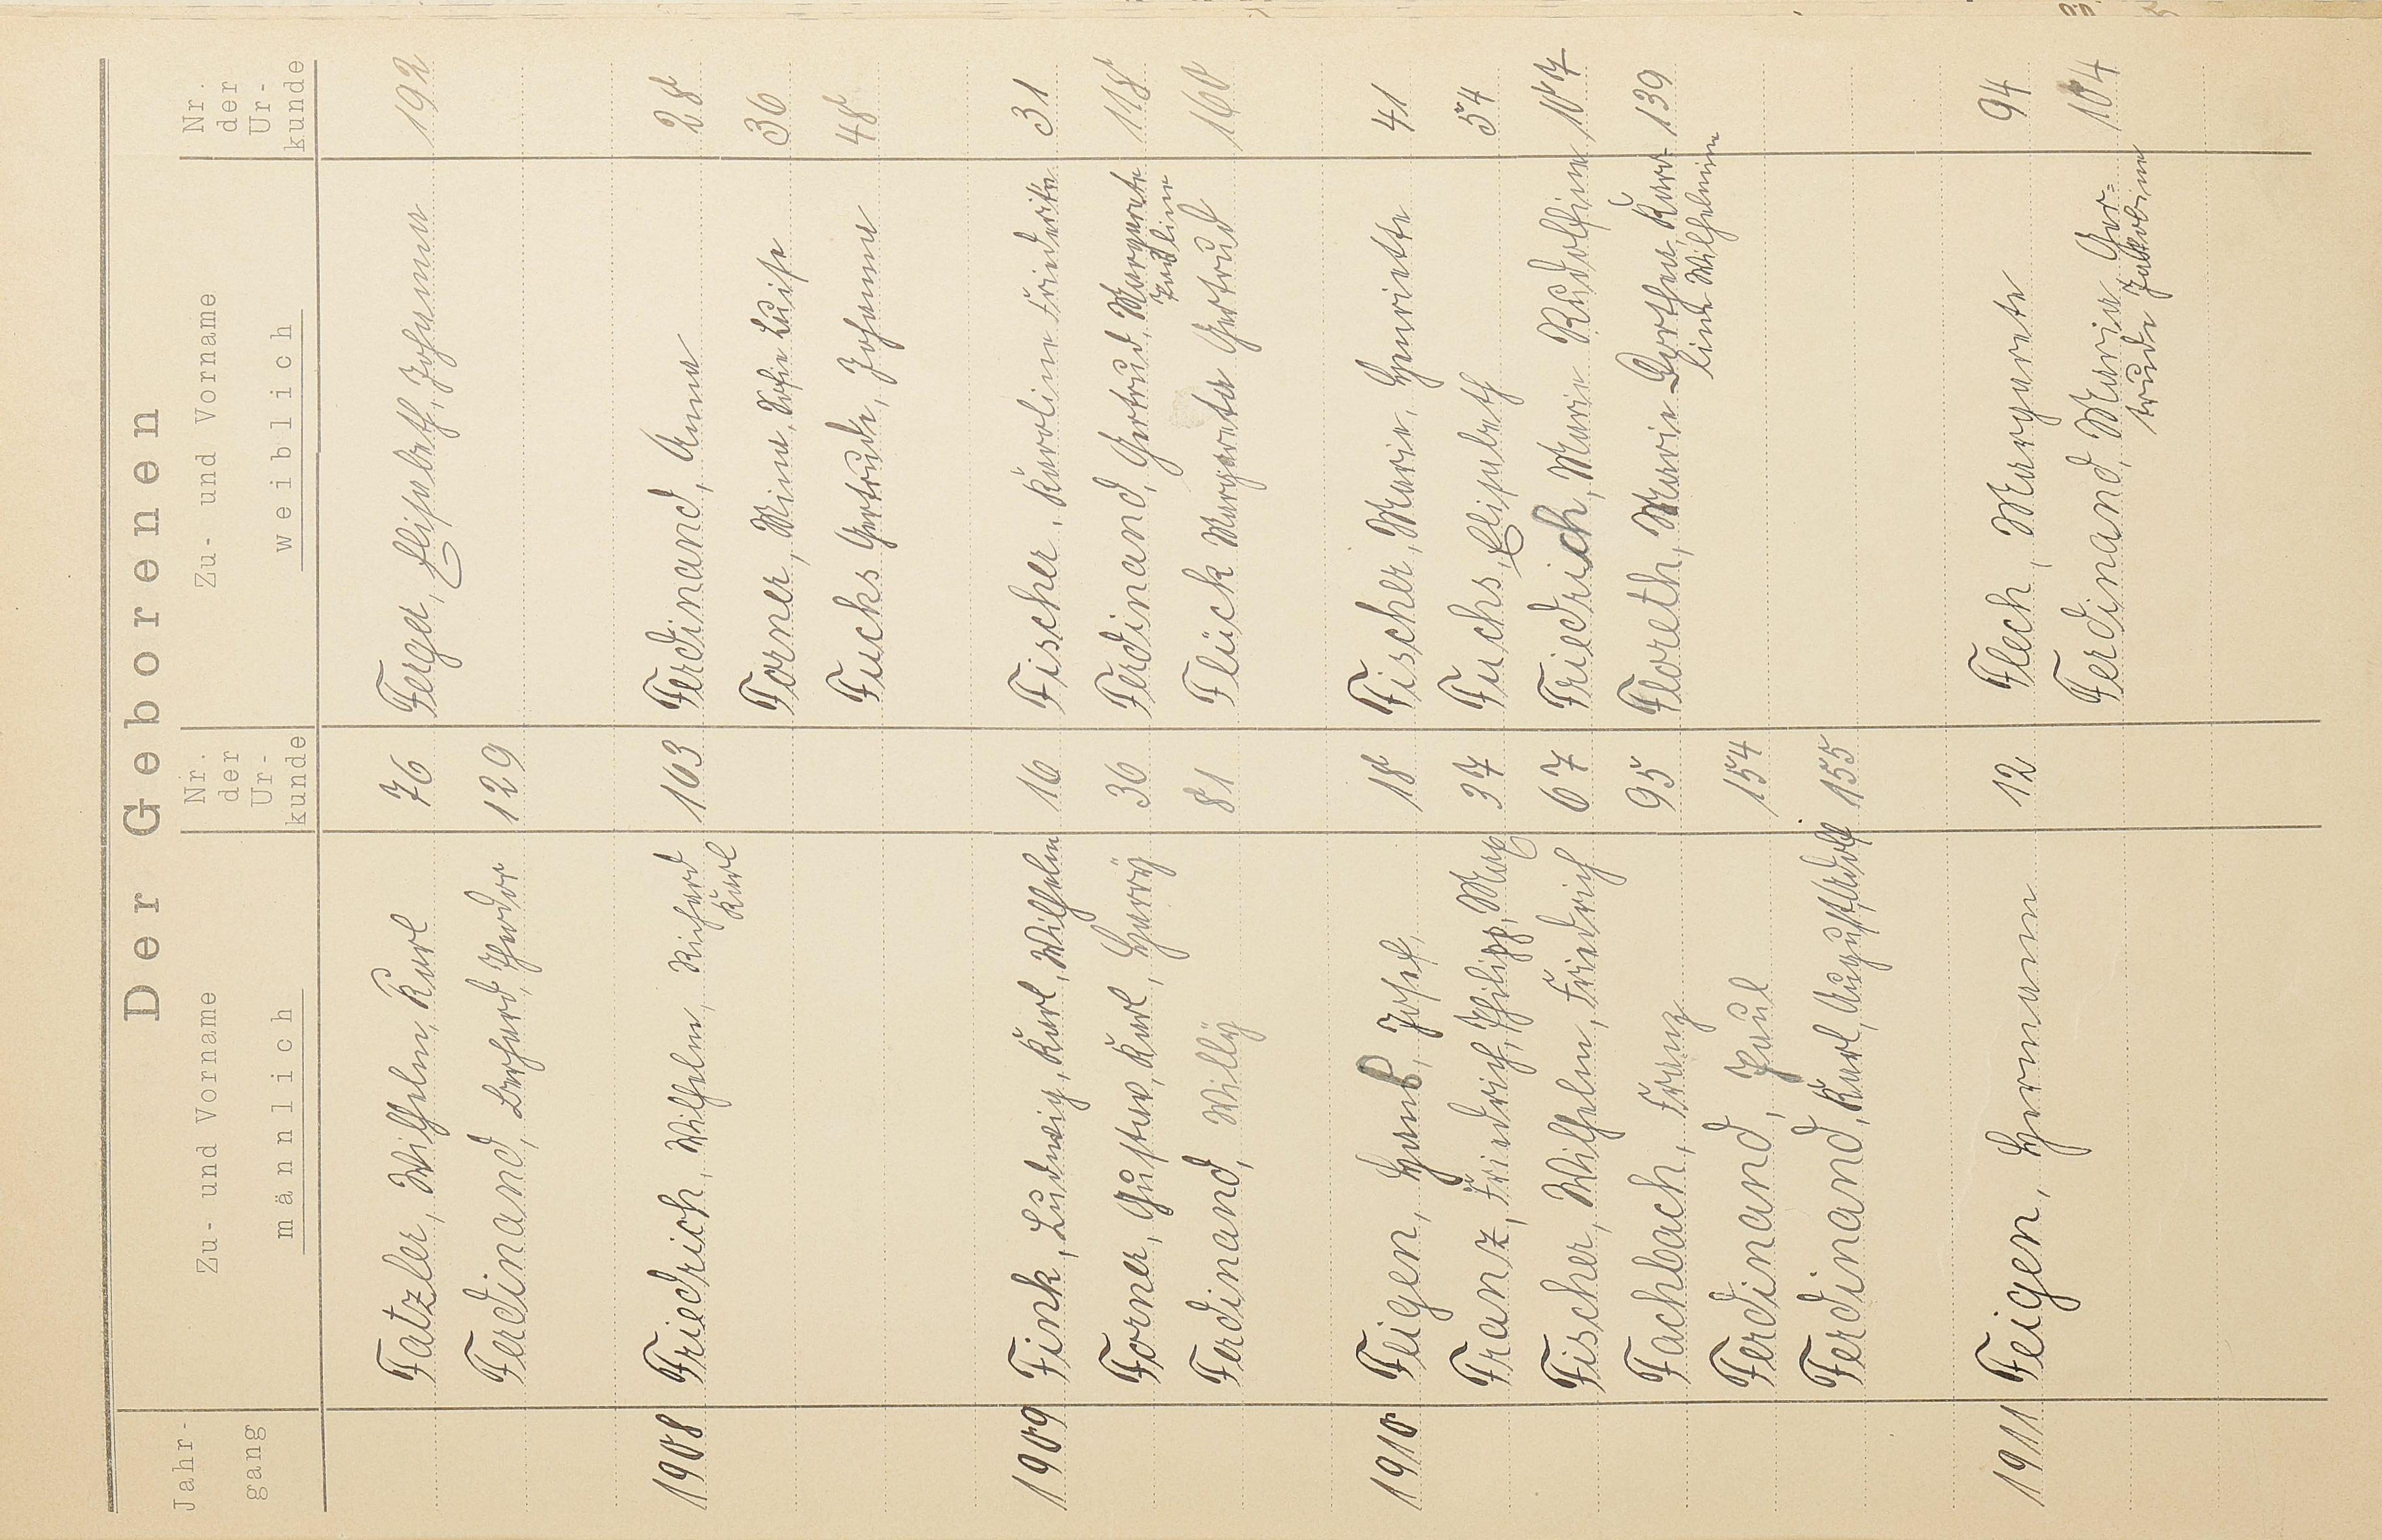 Der Geborenen
Jahr-
gang
Zu- und Vorname
männlich
Nr.
der
Ur-
kunde
Zu- und Vorname
weiblich
Nr.
der
Ur-
kunde
Fatzler, Wilhelm, Karl 76 Ferger, Elisabeth, Johanna 192
Ferdinand, Theodor 129
1908 Friedrich, Wilhelm, Richard 103 Ferdinand, Anna 28
Karl
Forner, Mina, Sofie Luise 36
Fucks Gertrude, Johanna 48
1909 Fink, Ludwig, Karl, Wilhelm 16 Fischer, Karoline Friederike 31
Forner, Gustav, Karl, Harrÿ 36 Ferdinand, Gertrud, Margarete 118
Pauline
Ferdinand, Willÿ 81 Flück Margareta Gertrud 160
1910 Feigen, Hans, Josef, 18 Fischer, Marie, Henriette 41
Franz, Friedrich, Philipp, Max 37 Fuchs, Elisabeth 54
Fischer, Wilhelm, Friedrich 67 Friedrich, Marie Rudolfine 107
Fachbach, Franz 95 Floreth, Marie Dorthea Karo- 139
line Wilhelmine
Ferdinand, Paul 154
Ferdinand, Karl, August, Adolf 155
1911 Feigen, Hermann 12 Flech, Margarete 94
Ferdinand, Maria Ger= 104
trude Jakobine